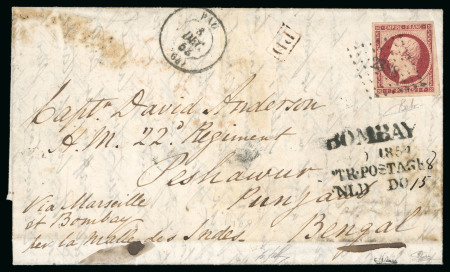 PAU
8
DEC
(64)
PD
EMPIRE FRANC
Captn. David Anderson
H.M. 22d Regiment
Peshawur
Punjab
Bengal
Via Marseille
et Bombay
per la Malle des Indes
BOMBAY
TR POSTAGE 8
NLD DO 15